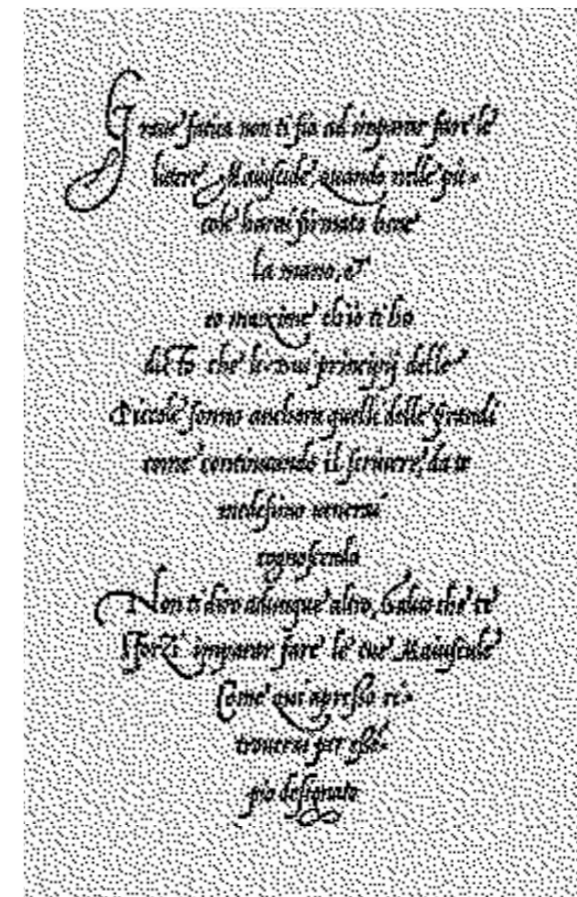 Graue fatica non ti fia ad imparar fare le
littere Maiuscule, quando nelle pic=
cole harai firmato bene
la mano, et
eo maxime ch'io ti ho
ditto che li dui principij delle
Piccole sonno anchora quelli delle Grandi
come continuando il scriuere, da te
medesimo uenerai
cognoscendo
Non ti diro adunque altro, Saluo che te
sforzi imparar fare le tue Maiuscule
Come qui apresso ri=
trouerai per essē=
pio designato